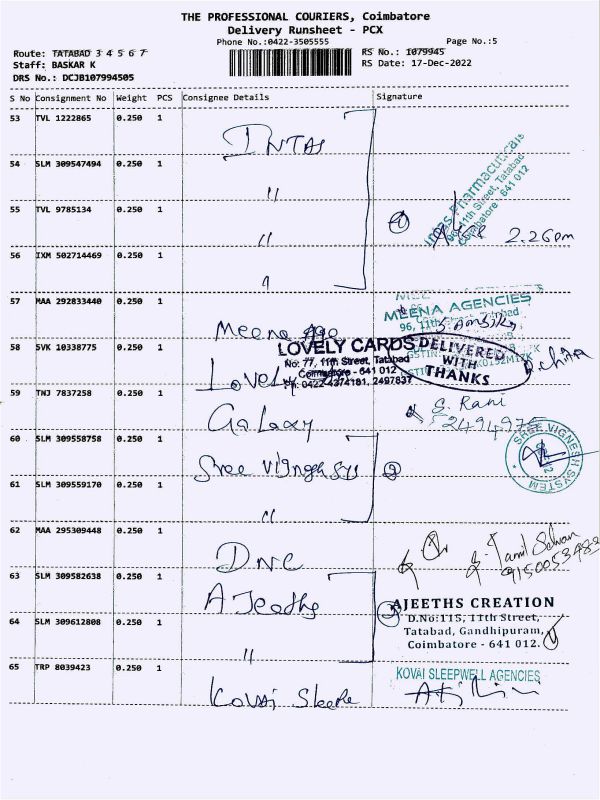 THE PROFESSIONAL COURIERS, Coimbatore
Delivery Runsheet - PCX
Phone No.:0422-3505555
Page No.:5
Route: TATABAD 3 4 5 6 7
RS No.: 1079945
Staff: BASKAR K
RS Date: 17-Dec-2022
DRS No.: DCJB107994505
S No Consignment No Weight PCS Consignee Details Signature
53 TVL 1222865 0.250 1
INTAS
54 SLM 309547494 0.250 1
"
Intas Pharmaceuticals
96, 11th Street, Tatabad
Coimbatore - 641 012
55 TVL 9785134 0.250 1
"
2.26pm
56 IXM 502714469 0.250 1
"
57 MAA 292833440 0.250 1
Meena Age
MEENA AGENCIES
96, 11th
58 SVK 10338775 0.250 1
Lovely
LOVELY CARDS
No: 77, 11th Street, Tatabad
Coimbatore - 641 012
Ph: 0422-4374181, 2497837
DELIVERED
WITH
THANKS
59 TNJ 7837258 0.250 1
Galaxy
S. Rani
60 SLM 309558758 0.250 1
Sree Vignesh Sys
SREE VIGNESH SYSTEM
61 SLM 309559170 0.250 1
"
62 MAA 295309448 0.250 1
DNC
Tamil Selvan
63 SLM 309582638 0.250 1
AJeeths
AJEETHS CREATION
D.No:115, 11th Street,
Tatabad, Gandhipuram,
Coimbatore - 641 012.
64 SLM 309612808 0.250 1
"
65 TRP 8039423 0.250 1
Kovai Sleepe
KOVAI SLEEPWELL AGENCIES